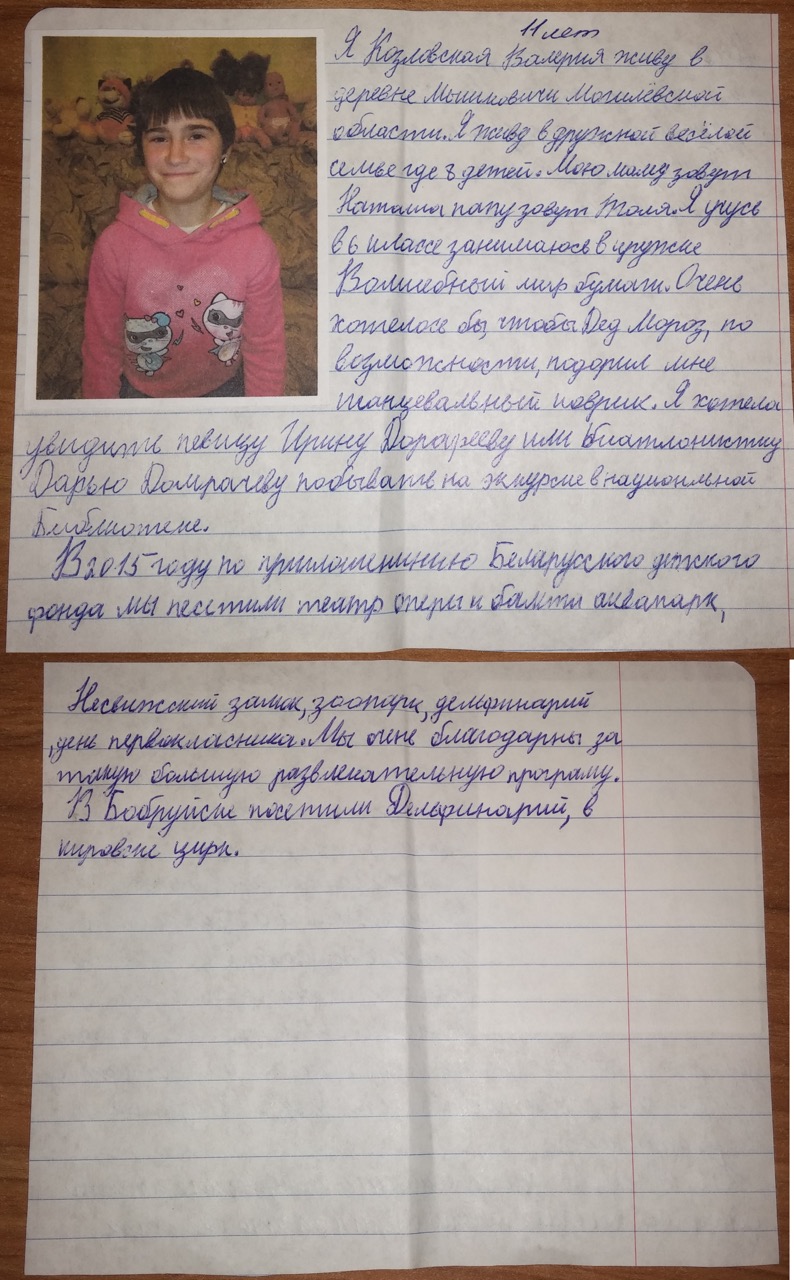 11 лет
Я Козловская Валерия живу в
деревне Мышковичи Могилёвской
области. Я живу в дружной весёлой
семье где 8 детей. Мою маму зовут
Наталья папу зовут Толя. Я учусь
в 6 классе занимаюсь в кружке
Волшебный мир бумаги. Очень
хотелось бы, чтобы Дед Мороз, по
возможности, подарил мне
танцевальный коврик. Я хотела
увидить певицу Ирину Дорофееву или Биатлонистку
Дарью Домрачеву побывать на экскурсие в национльной
Библиотеке.
В 2015 году по приглашенинию Беларусского детского
фонда мы песетили театр оперы и балета аквапарк,
Несвижский замок, зоопарк, дельфинарий
,день первокласника. Мы очень благодарны за
такую большую развлекательную програму.
В Бобруйске посетили Дельфинарий, в
кировске цирк.